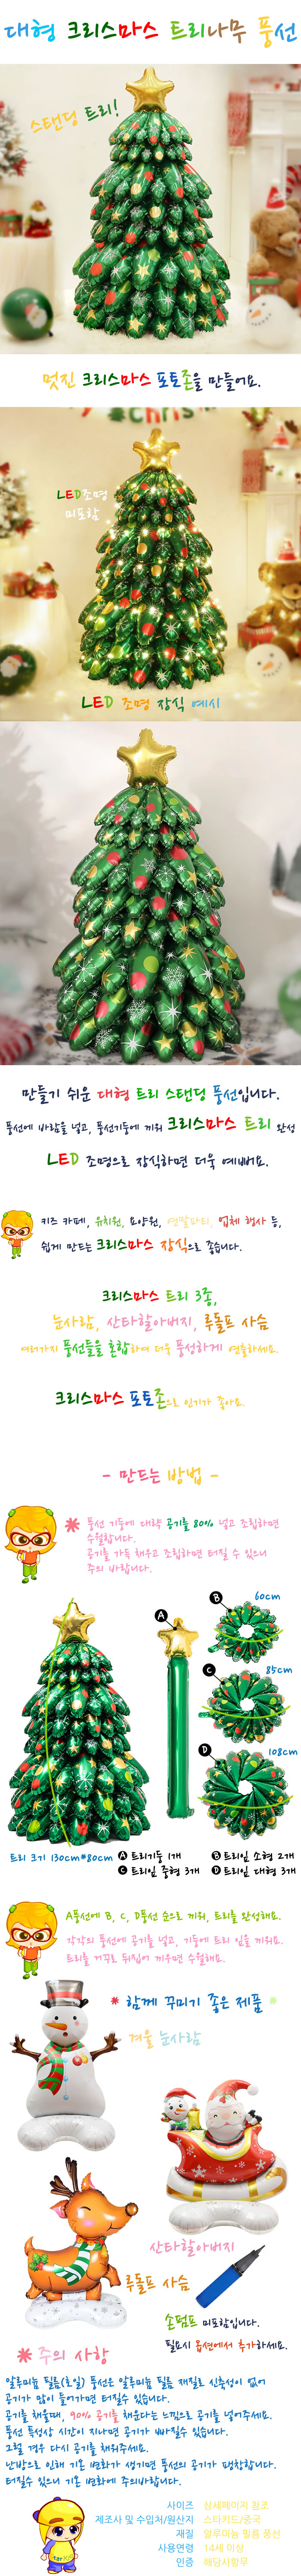 대형 크리스마스 트리나무 풍선
스탠딩 트리!
멋진 크리스마스 포토존을 만들어요.
CHRIS
LED조명
미포함
LED 조명 장식 예시
만들기 쉬운 대형 트리 스탠딩 풍선입니다.
풍선에 바람을 넣고, 풍선기둥에 끼워 크리스마스 트리 완성
LED 조명으로 장식하면 더욱 예뻐요.
키즈 카페, 유치원, 요양원, 연말파티, 업체 행사 등,
쉽게 만드는 크리스마스 장식으로 좋습니다.
크리스마스 트리 3종,
눈사람, 산타할아버지, 루돌프 사슴
여러가지 풍선들을 혼합하여 더욱 풍성하게 연출하세요.
크리스마스 포토존으로 인기가 좋아요.
- 만드는 방법 -
풍선 기둥에 대략 공기를 80% 넣고 조립하면
수월합니다.
공기를 가득 채우고 조립하면 터질 수 있으니
주의 바랍니다.
A
B
60cm
C
85cm
D
108cm
트리 크기 130cm*80cm
A 트리기둥 1개
B 트리잎 소형 2개
C 트리잎 중형 3개
D 트리잎 대형 3개
A풍선에 B, C, D풍선 순으로 끼워, 트리를 완성해요.
각각의 풍선에 공기를 넣고, 기둥에 트리 잎을 끼워요.
트리를 거꾸로 뒤집어 끼우면 수월해요.
함께 꾸미기 좋은 제품
겨울 눈사람
산타할아버지
루돌프 사슴
손펌프 미포함입니다.
필요시 옵션에서 추가하세요.
주의 사항
알루미늄 필름(호일) 풍선은 알루미늄 필름 재질로 신축성이 없어
공기가 많이 들어가면 터질수 있습니다.
공기를 채울때, 90% 공기를 채운다는 느낌으로 공기를 넣어주세요.
풍선 특성상 시간이 지나면 공기가 빠질수 있습니다.
그럴 경우 다시 공기를 채워주세요.
난방으로 인해 기온 변화가 생기면 풍선의 공기가 팽창합니다.
터질수 있으니 기온 변화에 주의바랍니다.
사이즈 상세페이지 참조
제조사 및 수입처/원산지 스타카드/중국
재질 알루미늄 필름 풍선
사용연령 14세 이상
인증 해당사항무